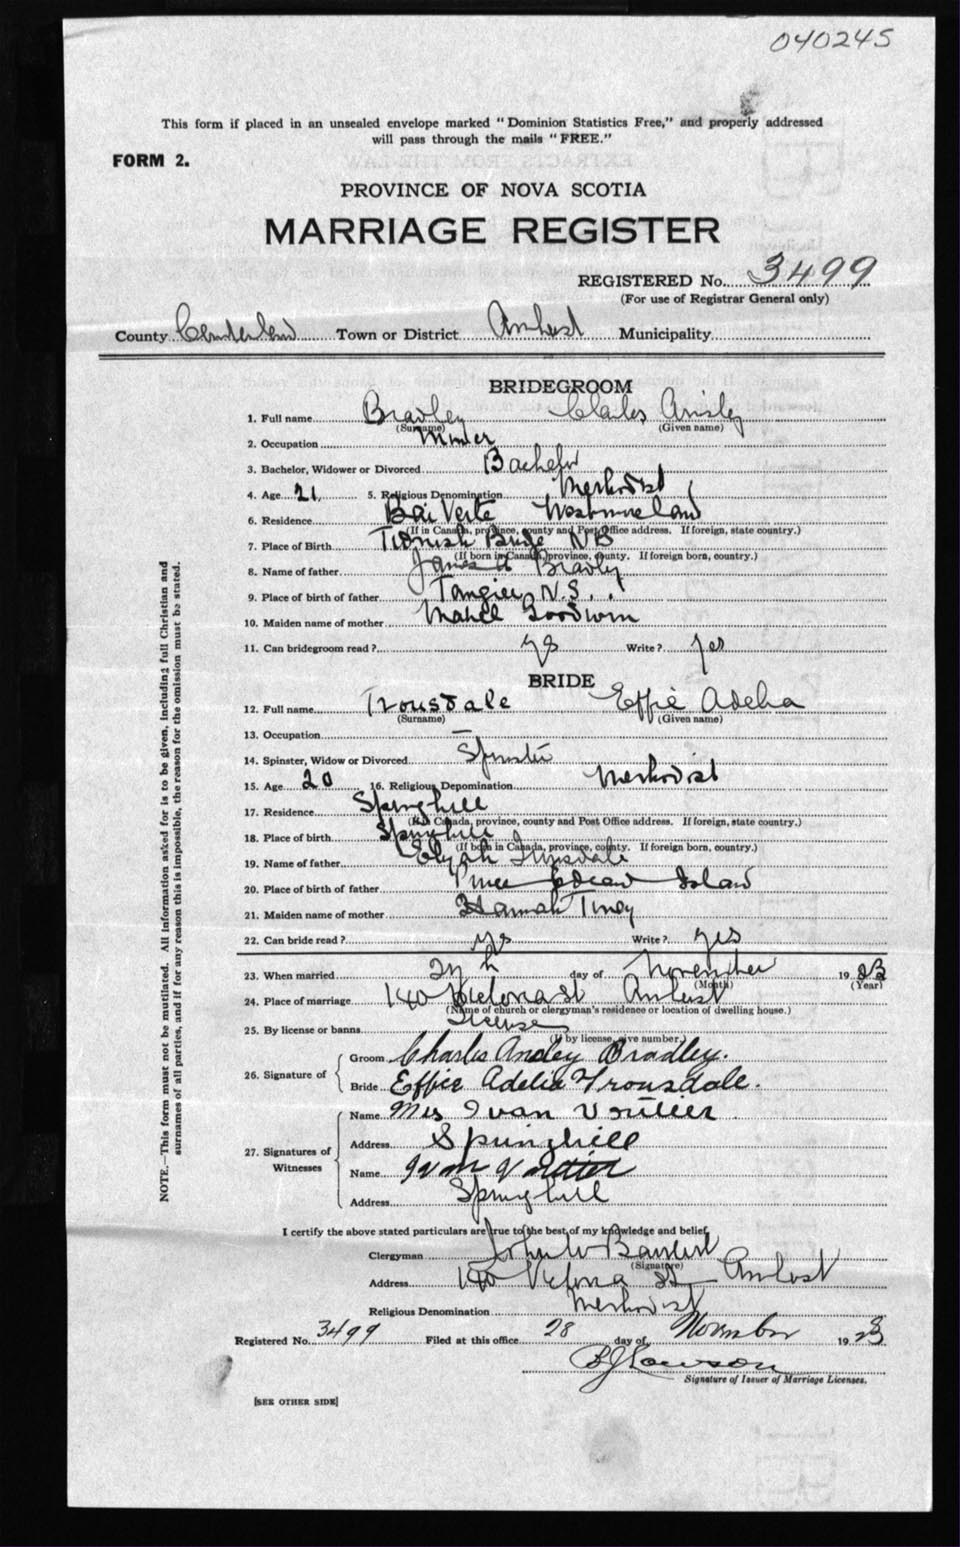 040245
This form if placed in an unsealed envelope marked "Dominion Statistics Free," and properly addressed
will pass through the mails "FREE."
FORM 2.
PROVINCE OF NOVA SCOTIA
MARRIAGE REGISTER
REGISTERED No. 3499
(For use of Registrar General only)
County Town or District Amherst Municipality
BRIDEGROOM
1. Full name Bradley Charles
(Surname) (Given name)
2. Occupation
3. Bachelor, Widower or Divorced Bachelor
4. Age 21 5. Religious Denomination Methodist
6. Residence Bai Verte Westmoreland
(If in Canada, province, county and Post Office address. If foreign, state country.)
7. Place of Birth Tidnish Bridge NB
(If born in Canada, province, county. If foreign born, country.)
8. Name of father James A Bradley
9. Place of birth of father Tangier N.S.
10. Maiden name of mother Mabel Goodwin
11. Can bridegroom read? yes Write? yes
BRIDE
12. Full name Trousdale Effie Adelia
(Surname) (Given name)
13. Occupation —
14. Spinster, Widow or Divorced Spinster
15. Age 20 16. Religious Denomination Methodist
17. Residence Springhill
(If in Canada, province, county and Post Office address. If foreign, state country.)
18. Place of birth Springhill
(If born in Canada, province, county. If foreign born, country.)
19. Name of father Elijah Trousdale
20. Place of birth of father Prince Edward Island
21. Maiden name of mother Hannah
22. Can bride read? yes Write? yes
23. When married day of November 1923
(Month) (Year)
24. Place of marriage 140 Victoria St Amherst
(Name of church or clergyman's residence or location of dwelling house.)
25. By license or banns License
(If by license, give number.)
26. Signature of
Groom Charles Bradley.
Bride Effie Adelia Trousdale.
27. Signatures of Witnesses
Name Mrs Ivan
Address Springhill
Name
Address Springhill
I certify the above stated particulars are true to the best of my knowledge and belief,
Clergyman John W
(Signature)
Address 140 Victoria St Amherst
Religious Denomination Methodist
Registered No. 3499 Filed at this office 28 day of November 1923
Signature of Issuer of Marriage Licenses.
[SEE OTHER SIDE]
NOTE.—This form must not be mutilated. All information asked for is to be given, including full Christian and
surnames of all parties, and if for any reason this is impossible, the reason for the omission must be stated.